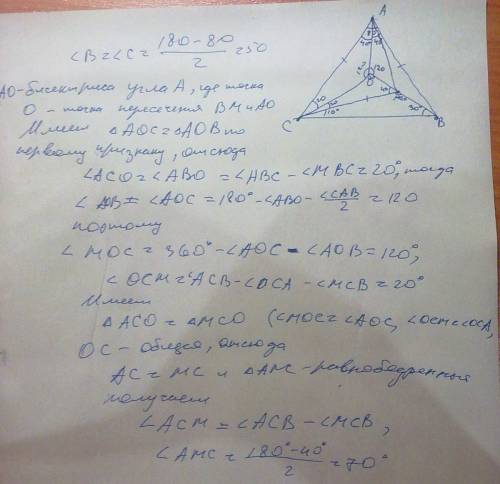 ∠B=∠C= (180-80)/2 =50
АО-биссектриса угла А, где точка
О - точка пересечения ВМ и АО
Имеем △AOC=△AOB по
первому признаку, отсюда
∠ACO=∠ABO=∠ABC-∠MBC=20°, тогда
∠AOB=∠AOC=180°-∠ABO-∠CAB/2=120
поэтому
∠MOC=360°-∠AOC-∠AOB=120°,
∠OCM=∠ACB-∠OCA-∠MCB=20°
Имеем
△ACO=△MCO (∠MOC=∠AOC, ∠OCM=∠OCA,
OC-общая, отсюда
AC=MC и △AMC-равнобедренный
получаем
∠ACM=∠ACB-∠MCB,
∠AMC= (180°-40°)/2 =70°
A
40
40
120
120
O
20
20
10°
C
B